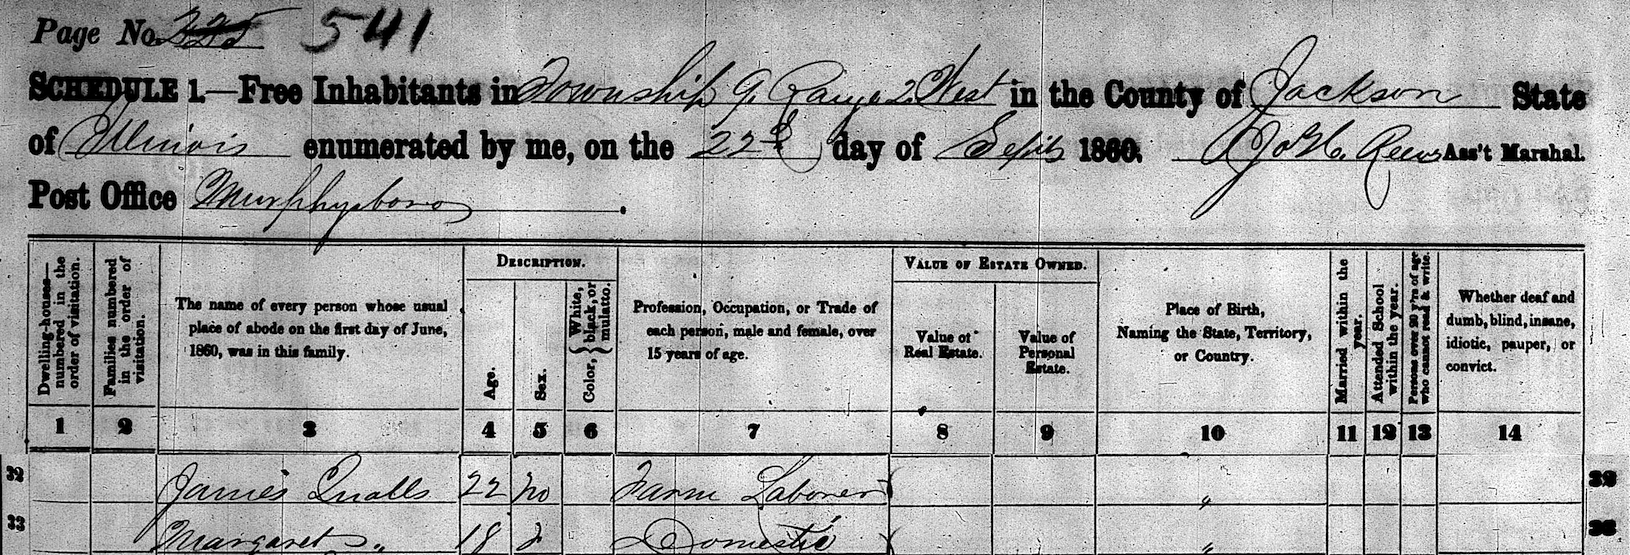 Page No. 225 541
SCHEDULE 1.—Free Inhabitants in Township 9 Range 2 West in the County of Jackson State
of Illinois enumerated by me, on the 22d day of Sept 1860. Jo H. Reeves Ass't Marshal.
Post Office Murphysboro.
Dwelling-houses—numbered in the order of visitation.
Families numbered in the order of visitation.
The name of every person whose usual
place of abode on the first day of June,
1860, was in this family.
DESCRIPTION.
Age.
Sex.
Color, { White, black, or mulatto.
Profession, Occupation, or Trade of
each person, male and female, over
15 years of age.
VALUE OF ESTATE OWNED.
Value of
Real Estate.
Value of
Personal
Estate.
Place of Birth,
Naming the State, Territory,
or Country.
Married within the year.
Attended School within the year.
Persons over 20 y'rs of age who cannot read & write.
Whether deaf and
dumb, blind, insane,
idiotic, pauper, or
convict.
1 2 3 4 5 6 7 8 9 10 11 12 13 14
32 James Qualls 22 m Farm Laborer " 32
33 Margaret " 18 f Domestic " 33